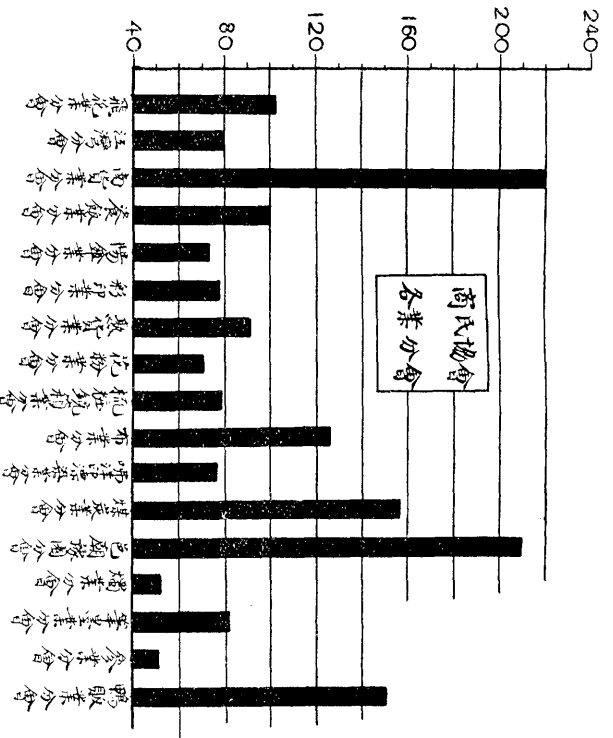 40 80 120 160 200 240
商民協會
各業分會
飛花業分會
江灣分會
南貨業分會
業分會
業分會
彩印業分會
貨業分會
粉業分會
業分會
布業分會
業分會
煤炭業分會
邑廟豫園分會
燭業分會
筆墨業分會
參業分會
鴨販業分會